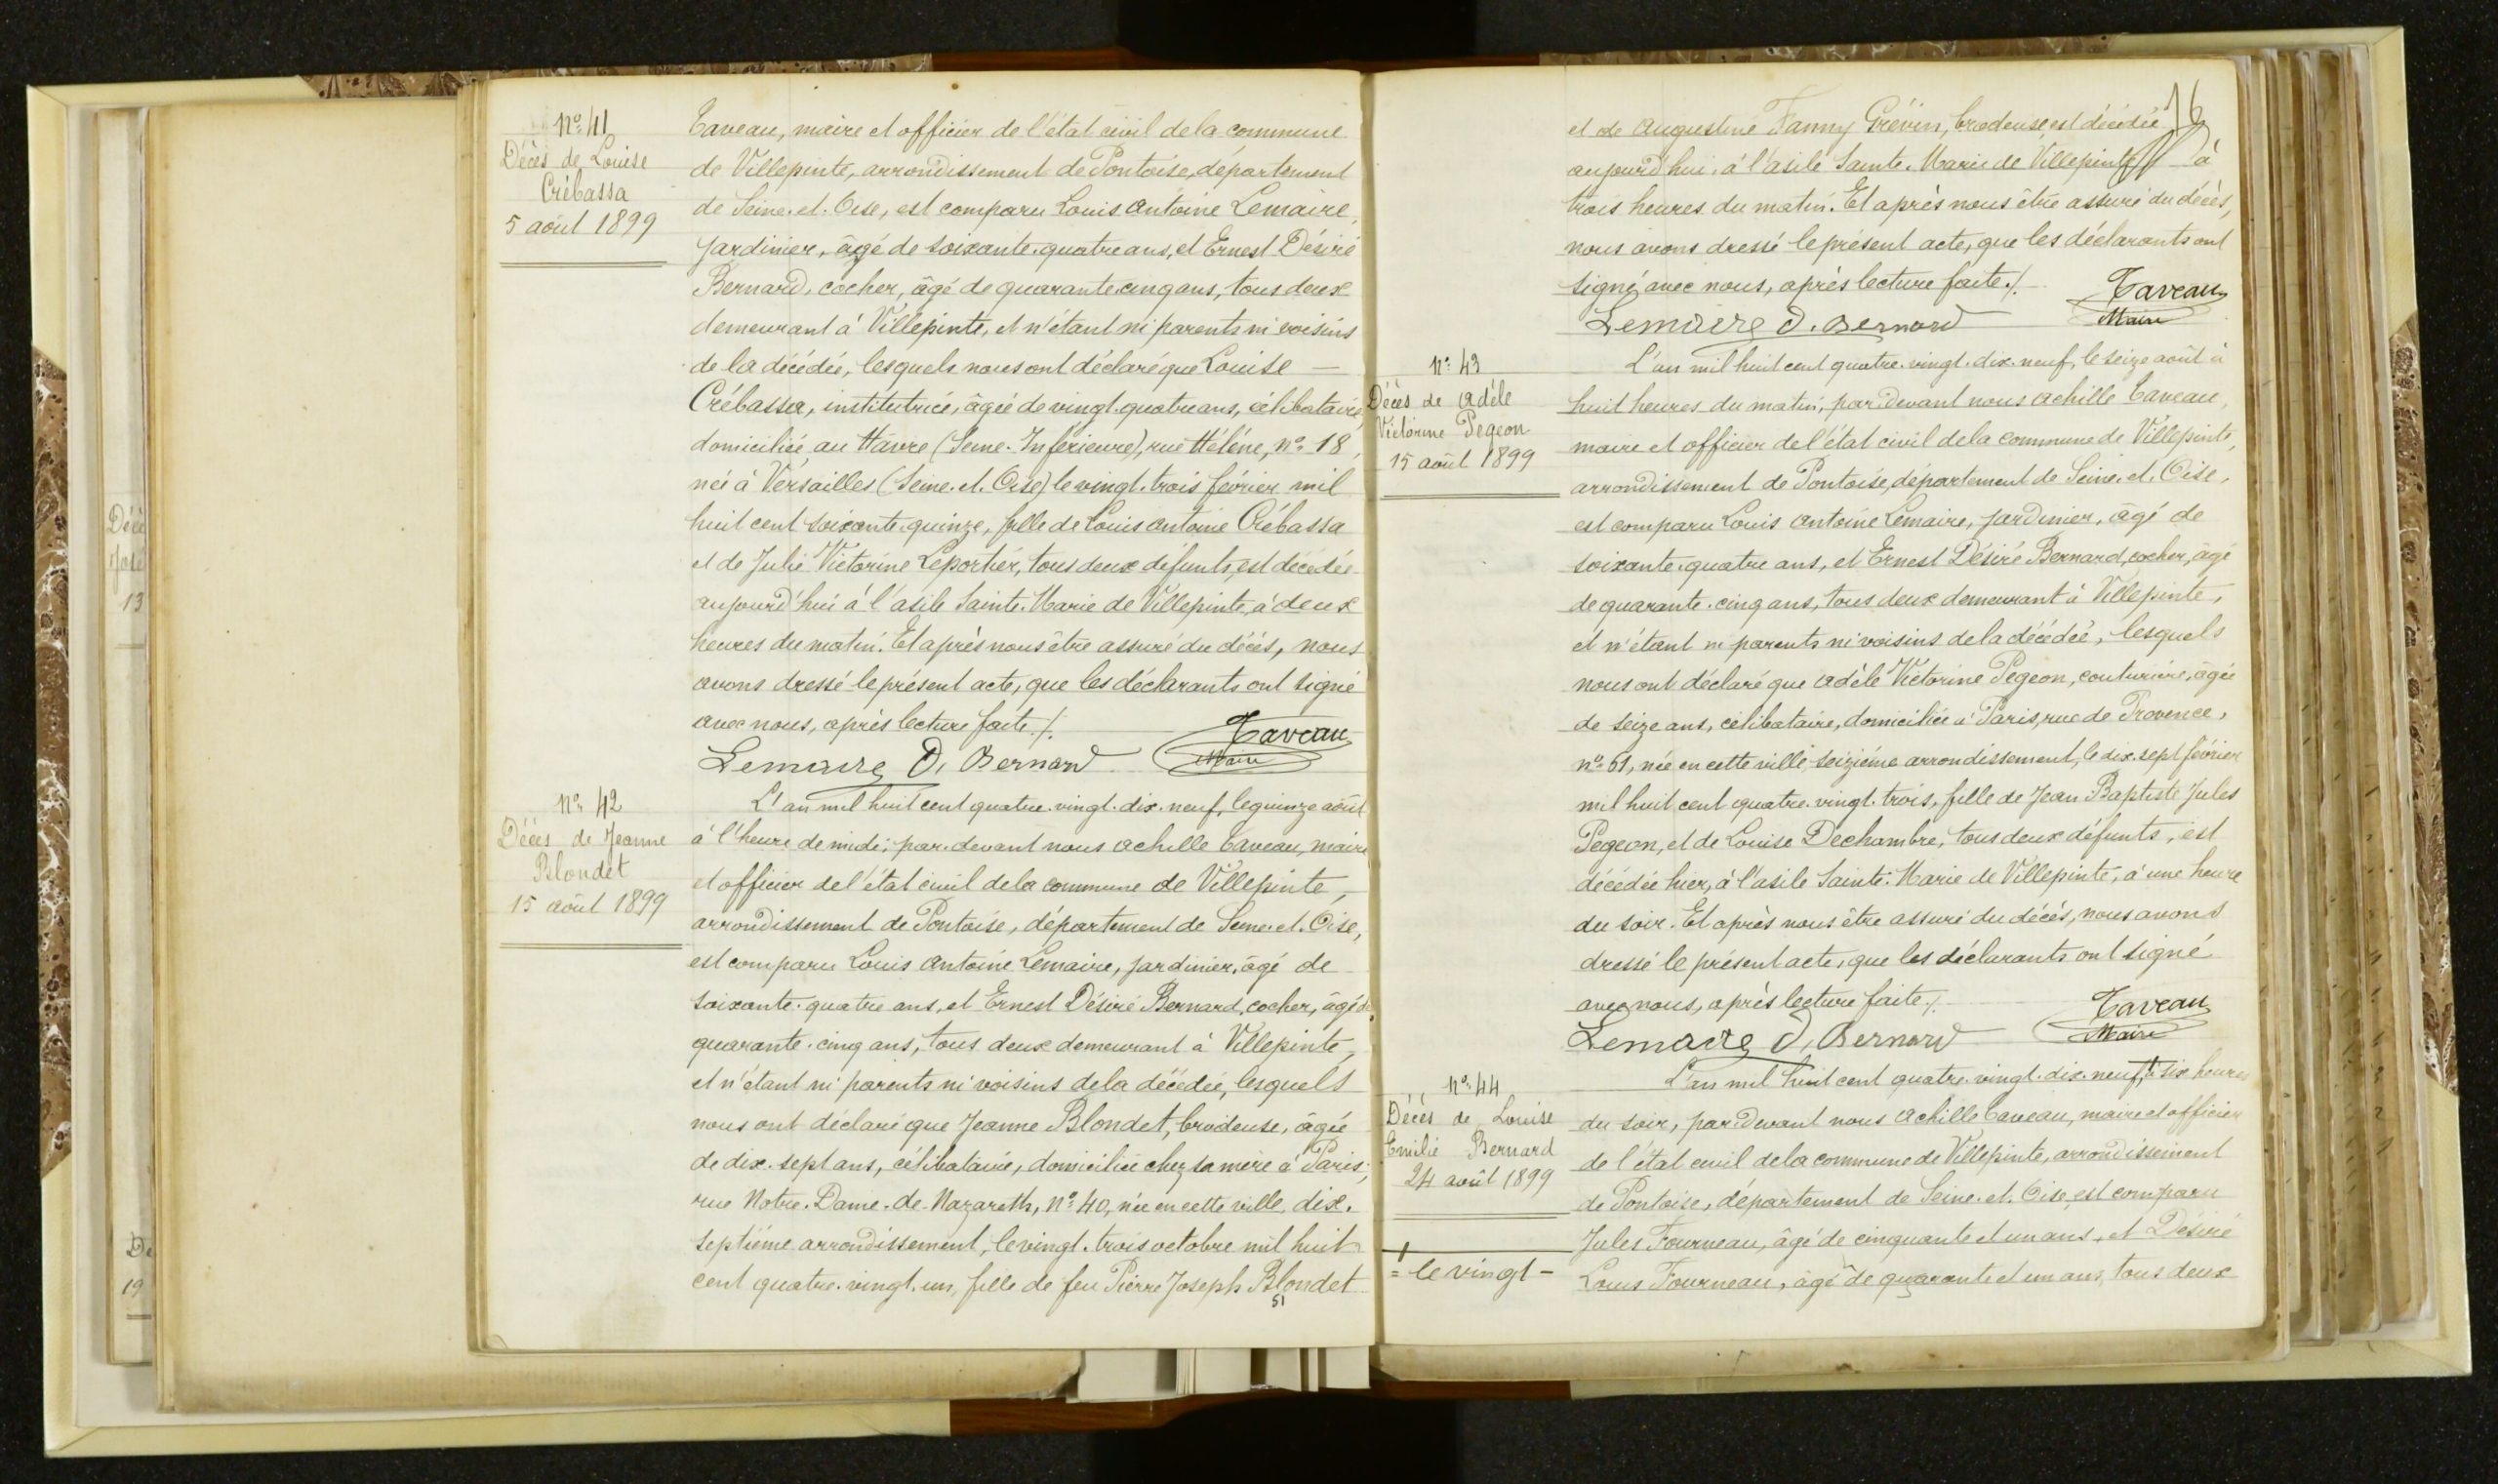 Décè
José
13
Dé
19
Nº 41
Décès de Louise
Crébassa
5 août 1899
Taveau, maire et officier de l'état civil de la commune
de Villepinte, arrondissement de Pontoise, département
de Seine-et-Oise, est comparu Louis Antoine Lemaire,
jardinier, âgé de soixante-quatre ans, et Ernest Désiré
Bernard, cocher, âgé de quarante-cinq ans, tous deux
demeurant à Villepinte, et n'étant ni parents ni voisins
de la décédée, lesquels nous ont déclaré que Louise —
Crébassa, institutrice, âgée de vingt-quatre ans, célibataire,
domiciliée au Hâvre (Seine-Inférieure), rue Hélène, nº 18,
née à Versailles (Seine-et-Oise) le vingt-trois février mil
huit cent soixante-quinze, fille de Louis Antoine Crébassa
et de Julie Victorine Leportier, tous deux défunts, est décédée
aujourd'hui à l'asile Sainte-Marie de Villepinte, à deux
heures du matin. Et après nous être assuré du décès, nous
avons dressé le présent acte, que les déclarants ont signé
avec nous, après lecture faite ./.
Taveau
Lemaire D. Bernard Maire
Nº 42
Décès de Jeanne
Blondet
15 août 1899
L'an mil huit cent quatre-vingt-dix-neuf, le quinze août
à l'heure de midi; par-devant nous Achille Taveau, maire
et officier de l'état civil de la commune de Villepinte,
arrondissement de Pontoise, département de Seine-et-Oise,
est comparu Louis Antoine Lemaire, jardinier, âgé de
soixante-quatre ans, et Ernest Désiré Bernard, cocher, âgé de
quarante-cinq ans, tous deux demeurant à Villepinte,
et n'étant ni parents ni voisins de la décédée, lesquels
nous ont déclaré que Jeanne Blondet, brodeuse, âgée
de dix-sept ans, célibataire, domiciliée chez sa mère à Paris,
rue Notre-Dame-de-Nazareth, Nº 40, née en cette ville, dix-
septième arrondissement, le vingt-trois octobre mil huit
cent quatre-vingt-un, fille de feu Pierre Joseph Blondet
51
16
et de Augustine Fanny Grévin, brodeuse, est décédée
aujourd'hui, à l'asile Sainte-Marie de Villepinte à
trois heures du matin. Et après nous être assuré du décès,
nous avons dressé le présent acte, que les déclarants ont
signé avec nous, après lecture faite ./. Taveau
Lemaire D. Bernard Maire
Nº 43
Décès de Adèle
Victorine Pegeon
15 août 1899
L'an mil huit cent quatre-vingt-dix-neuf, le seize août à
huit heures du matin, par-devant nous Achille Taveau,
maire et officier de l'état civil de la commune de Villepinte,
arrondissement de Pontoise, département de Seine-et-Oise,
est comparu Louis Antoine Lemaire, jardinier, âgé de
soixante-quatre ans, et Ernest Désiré Bernard, cocher, âgé
de quarante-cinq ans, tous deux demeurant à Villepinte,
et n'étant ni parents ni voisins de la décédée, lesquels
nous ont déclaré que Adèle Victorine Pegeon, couturière, âgée
de seize ans, célibataire, domiciliée à Paris, rue de Provence,
nº 61, née en cette ville, seizième arrondissement, le dix-sept février
mil huit cent quatre-vingt-trois, fille de Jean Baptiste Jules
Pegeon, et de Louise Dechambre, tous deux défunts, est
décédée hier, à l'asile Sainte-Marie de Villepinte, à une heure
du soir. Et après nous être assuré du décès, nous avons
dressé le présent acte, que les déclarants ont signé
avec nous, après lecture faite ./. Taveau
Lemaire D. Bernard Maire
Nº 44
Décès de Louise
Emilie Bernard
24 août 1899
= le vingt -
L'an mil huit cent quatre-vingt-dix-neuf, à six heures
du soir, par-devant nous Achille Taveau, maire et officier
de l'état civil de la commune de Villepinte, arrondissement
de Pontoise, département de Seine-et-Oise, est comparu
Jules Fourneau, âgé de cinquante et un ans, et Désiré
Louis Fourneau, âgé de quarante et un ans, tous deux